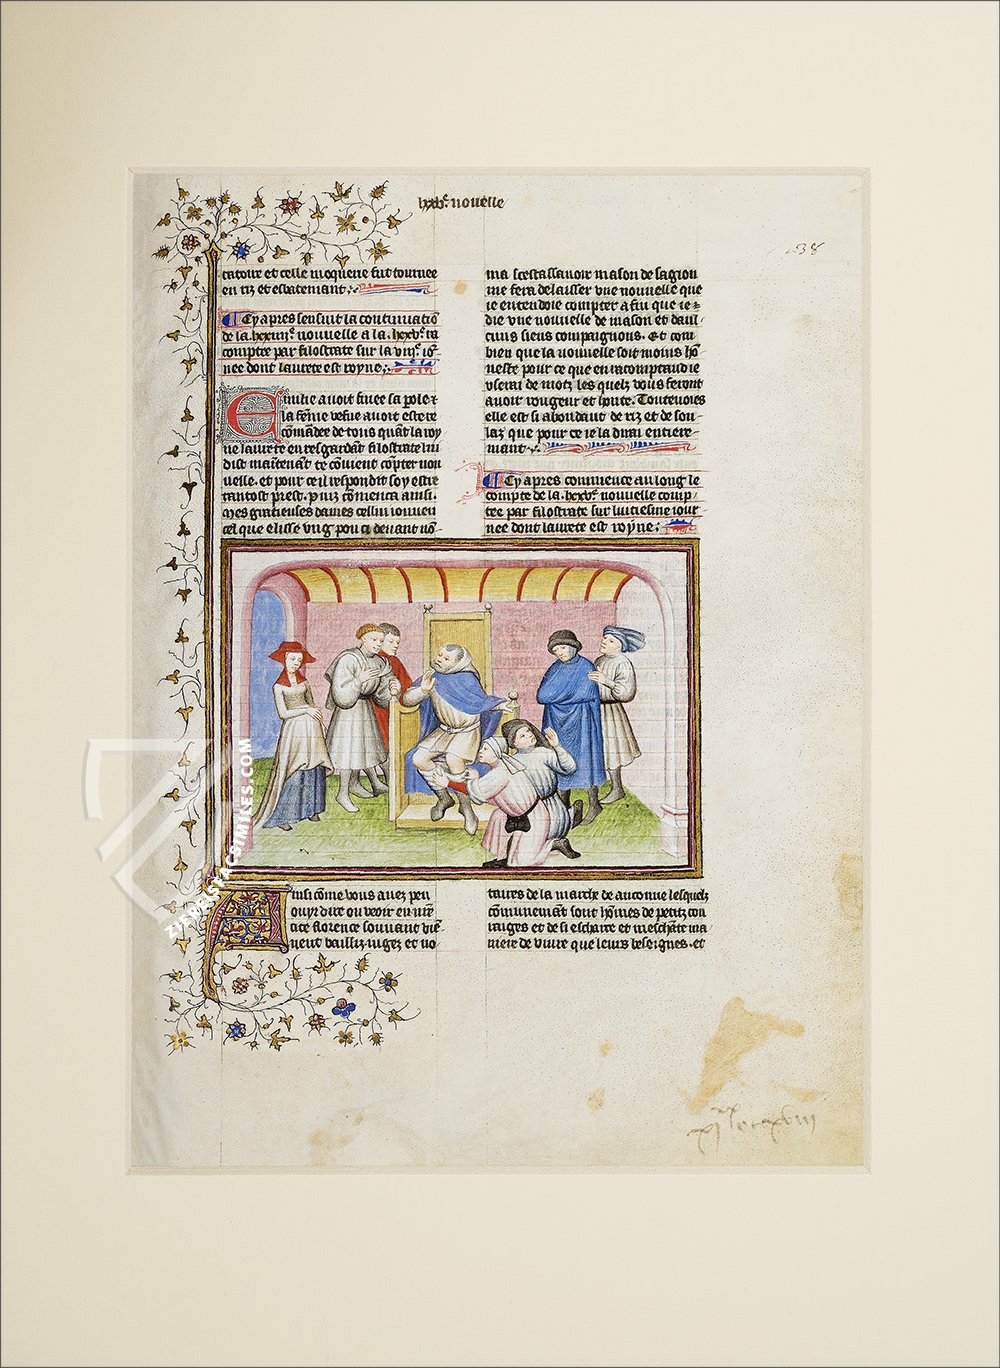 lxxv.e nouelle
238
catoire et celle moquerie fut tournee
en riz et esbatemant
Cy apres sensuit la continuatiō
de la lxxiiii.e nouuelle a la lxxv.e ra
comptee par filostrate sur la viii.e io͛
nee dont laurete est royne
Emilie auoit finee sa parole ⁊
la fēme vefue auoit este re
cōmandee de tous quāt la roy
ne laurete en resgardāt filostrate lui
dist maītenant te cōuient cōpter nou
uelle. et pour ce il respondit soy estre
tantost prest. puiz cōmenca ainsi.
Mes gracieuses dames cellui iouuen
cel que elisse vng pou cy deuant nō
ma scestassauoir mason de sagiou
me fera delaisser vne nouuelle que
ie entendoie compter afin que ie
die vne nouuelle de mason et daul
cuns siens compaignons. Et com
bien que la nouuelle soit moins hō
neste pour ce que en racomptand ie
vserai de motz lesquelz vous feront
auoir rougeur et honte. Toutenoies
elle est si abondant de riz et de sou
laz que pour ce ie la dirai entiere
mant
Cy apres commence au long le
compte de la lxxv.e nouuelle comp
tee par filostrate sur luitiesme iour
nee dont laurete est royne
Ainsi cōme vous auez peu
ouyr dire ou veoir en nr͞e
cite florence souuant viē
nent bailliz iugez et no
taires de la marche de anconne lesquelz
cōmunemāt sont hōmes de petitz cou
raiges et de si escharce et meschāte ma
niere de viure que leurs besoignes. et
ZIEREISFACSIMILES.COM